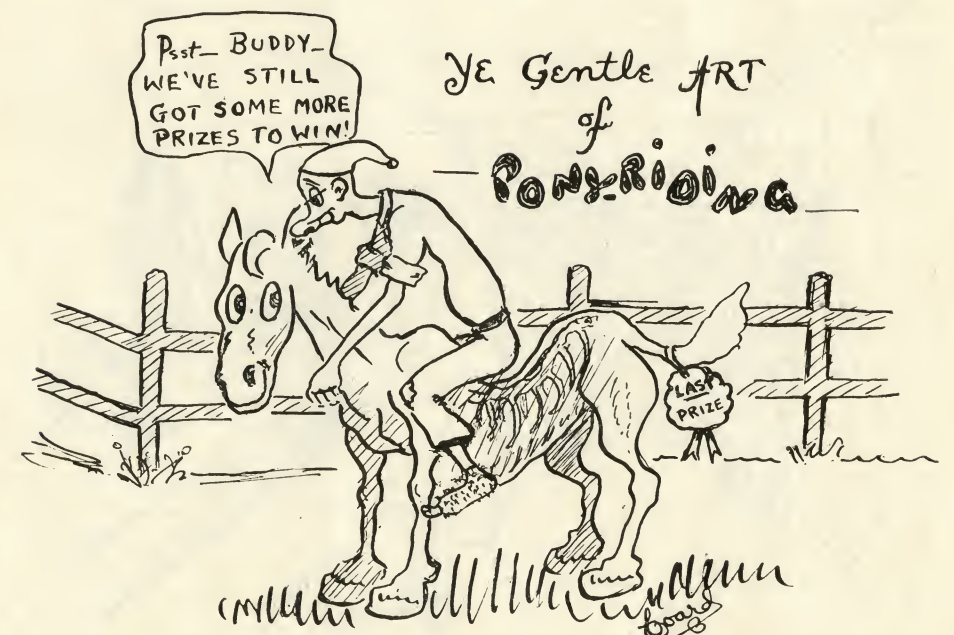 Psst_ BUDDY_
WE'VE STILL
GOT SOME MORE
PRIZES TO WIN!
YE Gentle ART
of
— PONY-RIDING —
LAST
PRIZE